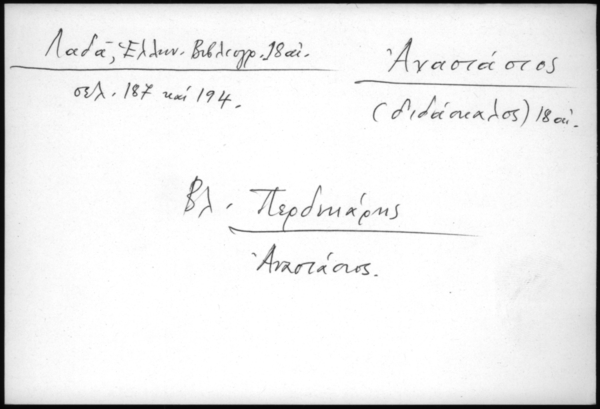 Λαδᾶ, Ἑλλην. Βιβλιογρ. 18 αἰ.
σελ. 187 καί 194.
Ἀναστάσιος
(διδάσκαλος) 18 αἰ.
Βλ. Περδικάρης
Ἀναστάσιος.